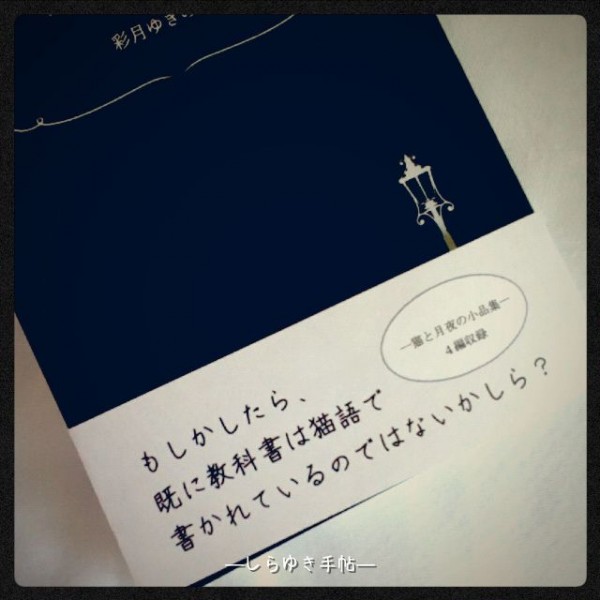 彩月ゆき
―猫と月夜の小品集―
4編収録
もしかしたら、
既に教科書は猫語で
書かれているのではないかしら？
―しらゆき手帖―